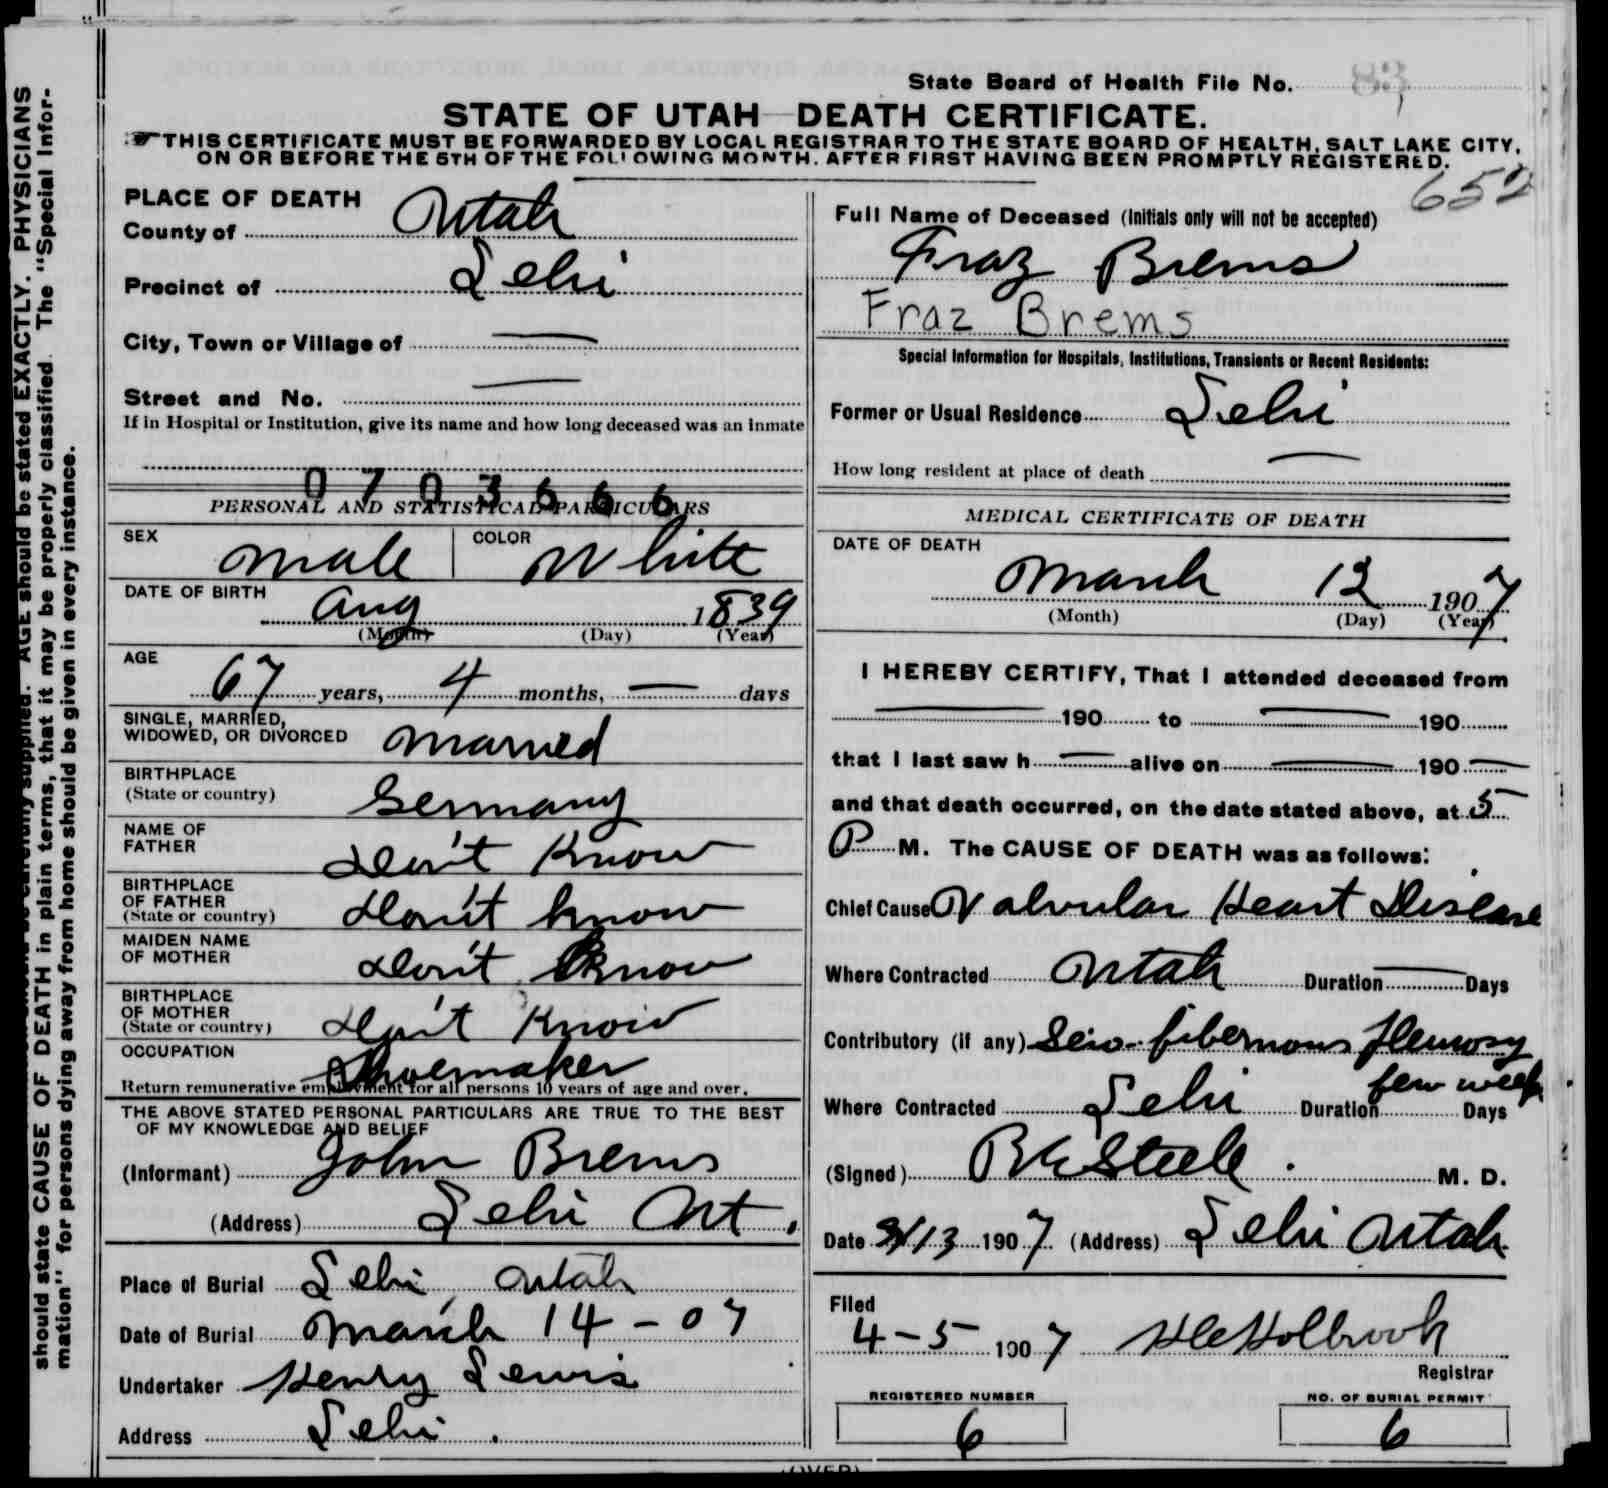 State Board of Health File No. 83
STATE OF UTAH DEATH CERTIFICATE.
THIS CERTIFICATE MUST BE FORWARDED BY LOCAL REGISTRAR TO THE STATE BOARD OF HEALTH, SALT LAKE CITY,
ON OR BEFORE THE 5TH OF THE FOLLOWING MONTH, AFTER FIRST HAVING BEEN PROMPTLY REGISTERED.
652
PLACE OF DEATH
County of Utah
Precinct of Lehi
City, Town or Village of —
Street and No. —
If in Hospital or Institution, give its name and how long deceased was an inmate
0703666
PERSONAL AND STATISTICAL PARTICULARS
SEX Male COLOR White
DATE OF BIRTH Aug 1839
(Month) (Day) (Year)
AGE
67 years, 4 months, — days
SINGLE, MARRIED,
WIDOWED, OR DIVORCED Married
BIRTHPLACE
(State or country) Germany
NAME OF
FATHER Don't Know
BIRTHPLACE
OF FATHER
(State or country) Don't know
MAIDEN NAME
OF MOTHER Don't Know
BIRTHPLACE
OF MOTHER
(State or country) Don't Know
OCCUPATION Shoemaker
Return remunerative employment for all persons 10 years of age and over.
THE ABOVE STATED PERSONAL PARTICULARS ARE TRUE TO THE BEST
OF MY KNOWLEDGE AND BELIEF
(Informant) John Brems
(Address) Lehi Ut.
Place of Burial Lehi, Utah
Date of Burial March 14 - 07
Undertaker Henry Lewis
Address Lehi.
Full Name of Deceased (Initials only will not be accepted)
Fraz Brems
Fraz Brems
Special Information for Hospitals, Institutions, Transients or Recent Residents:
Former or Usual Residence Lehi
How long resident at place of death —
MEDICAL CERTIFICATE OF DEATH
DATE OF DEATH
March 12 1907
(Month) (Day) (Year)
I HEREBY CERTIFY, That I attended deceased from
— 190 to — 190
that I last saw h — alive on — 190 —
and that death occurred, on the date stated above, at 5
P M. The CAUSE OF DEATH was as follows:
Chief Cause Valvular Heart Disease
Where Contracted Utah Duration — Days
Contributory (if any) Sero-fibernous Pleurosy
Where Contracted Lehi Duration few weeks Days
(Signed) R E Steele. M. D.
Date 3/13 1907 (Address) Lehi Utah
Filed
4-5 1907 Holbrook
Registrar
REGISTERED NUMBER NO. OF BURIAL PERMIT
6 6
(OVER)
AGE should be stated EXACTLY. PHYSICIANS
should state CAUSE OF DEATH in plain terms, that it may be properly classified. The "Special Infor-
mation" for persons dying away from home should be given in every instance.